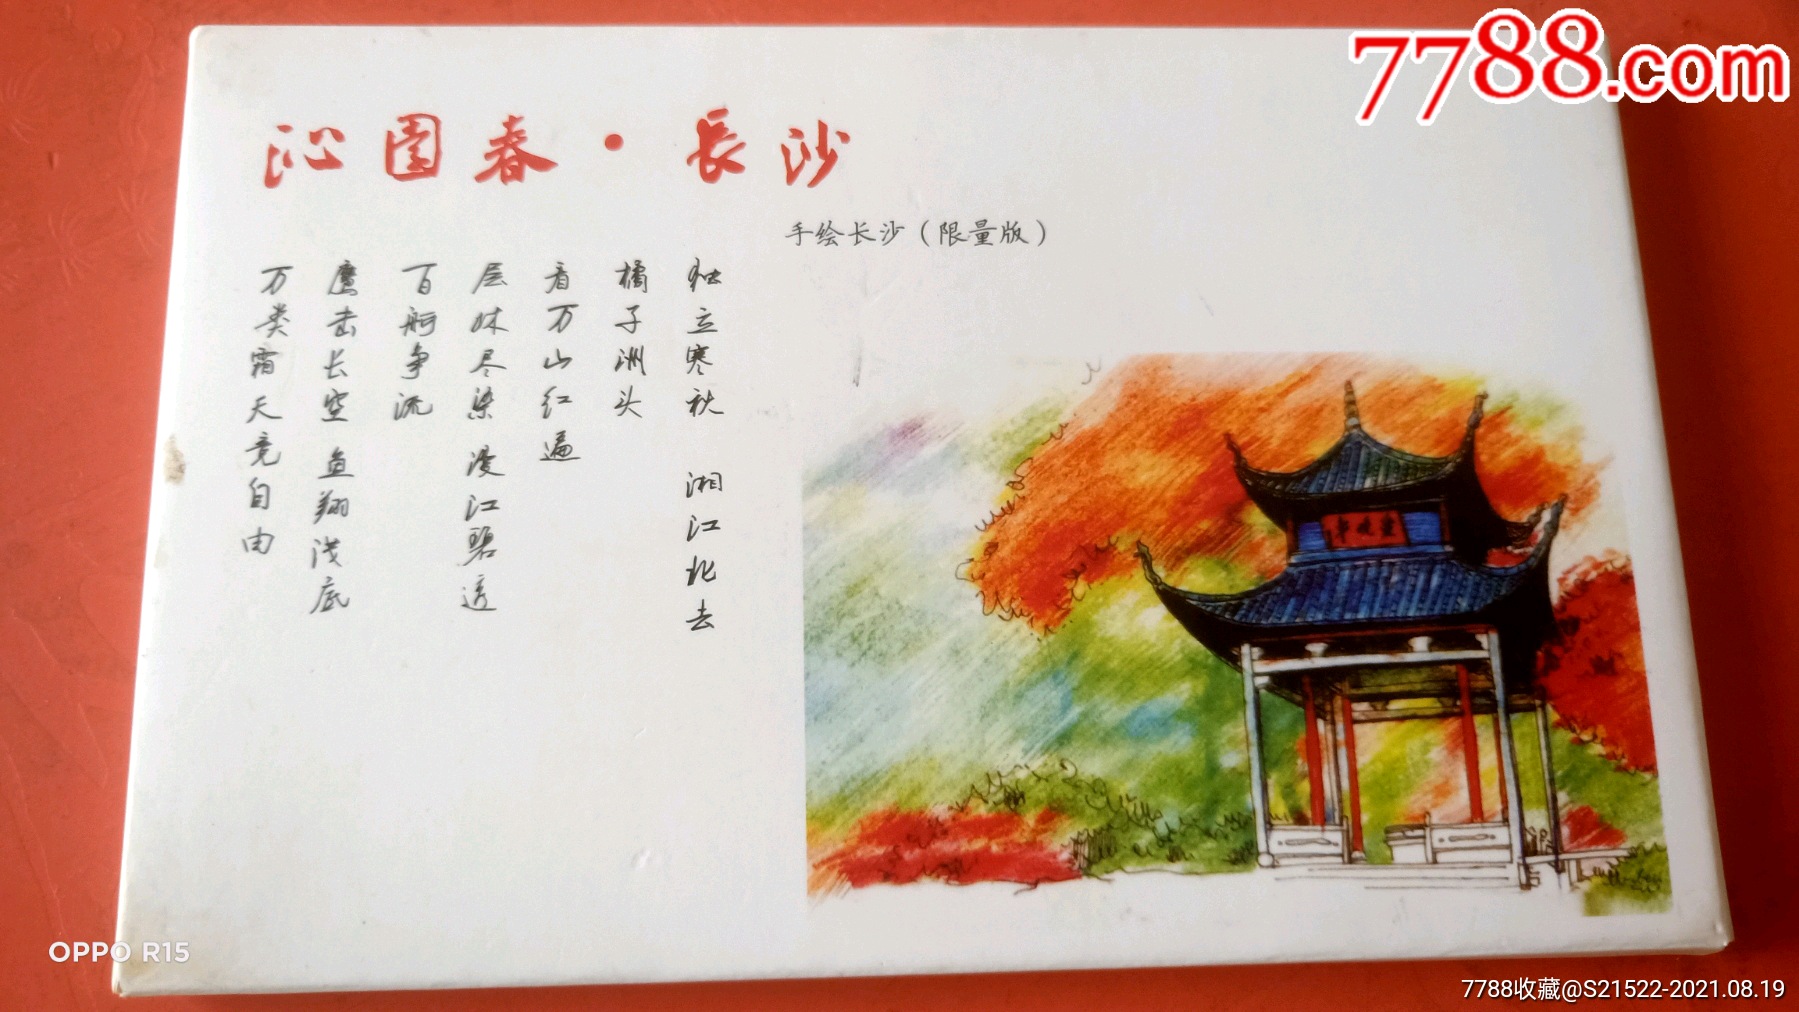 7788.com
沁園春·長沙
手绘长沙（限量版）
独立寒秋 湘江北去
橘子洲头
看万山红遍
层林尽染 漫江碧透
百舸争流
鹰击长空 鱼翔浅底
万类霜天竞自由
OPPO R15
7788收藏@S21522-2021.08.19